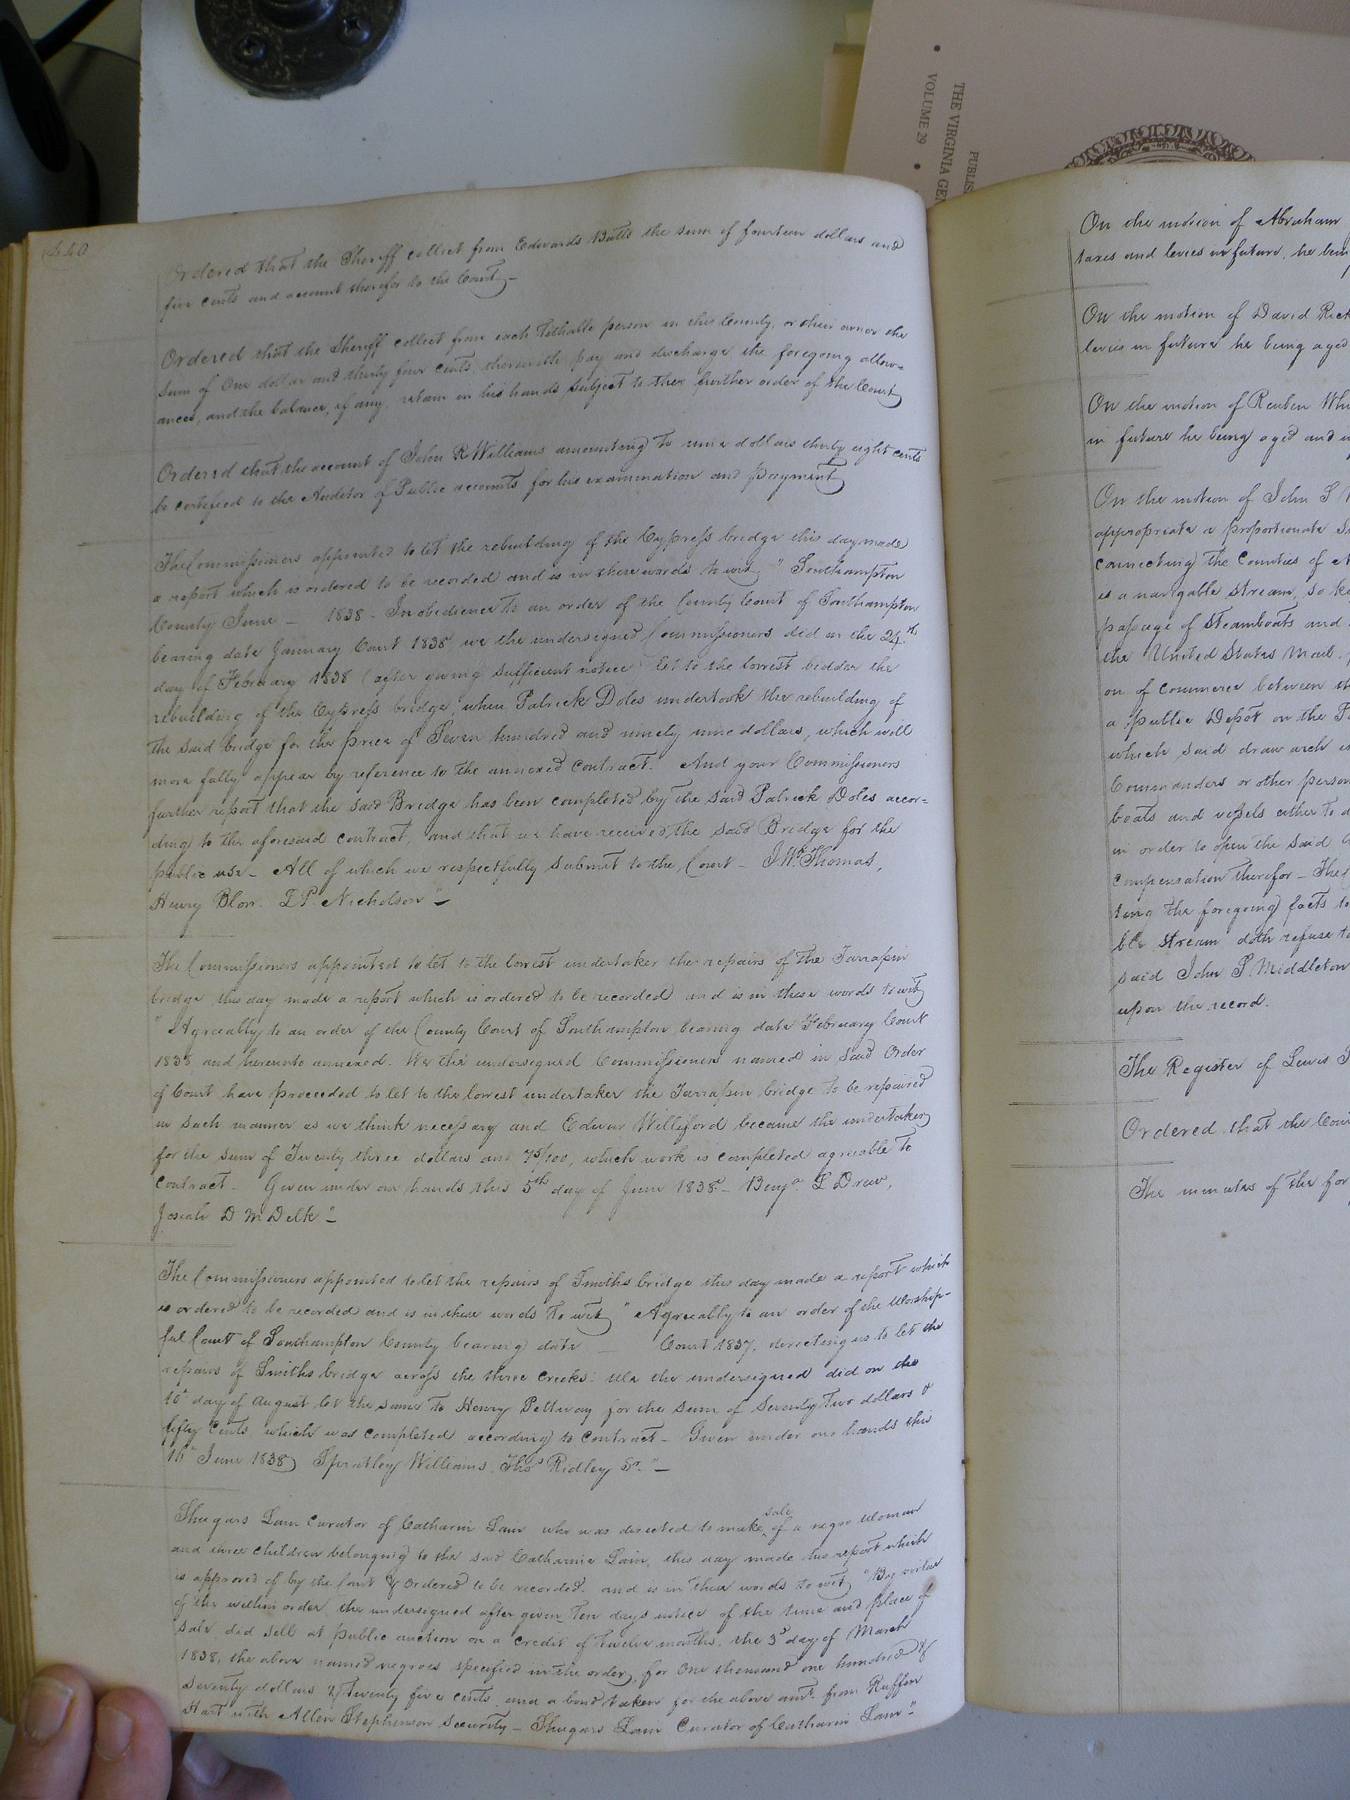 440
Ordered that the Sheriff collect from Edwards Batts the sum of fourteen dollars and
five cents and account therefor to the Court –
Ordered that the Sheriff collect from each Tithable person in this County, or their owner the
sum of One dollar and thirty four cents therewith pay and discharge the foregoing allow=
ances, and the balance, if any, retain in his hands subject to the further order of the Court
Ordered that the account of John R Williams amounting to nine dollars thirty eight cents
be certified to the Auditor of Public accounts for his examination and payment
The Commissioners appointed to let the rebuilding of the Cypress bridge this day made
a report which is ordered to be recorded and is in these words to wit, " Southampton
County June – 1838 – In obedience to an order of the County Court of Southampton
bearing date January Court 1838 we the undersigned Commissioners did on the 24th
day of February 1838 (after giving sufficient notice) let to the lowest bidder the
rebuilding of the Cypress bridge, when Patrick Doles undertook the rebuilding of
the said bridge for the price of Seven hundred and ninety nine dollars, which will
more fully appear by reference to the annexed contract. And your Commissioners
further report that the said Bridge has been completed by the said Patrick Doles accor=
ding to the aforesaid contract, and that we have received the said Bridge for the
public use – All of which we respectfully submit to the Court – J. Wm Thomas,
Henry Blow. E P Nicholson" –
The Commissioners appointed to let to the lowest undertaker the repairs of the Tarrapin
bridge this day made a report which is ordered to be recorded and is in these words to wit
" Agreeably to an order of the County Court of Southampton bearing date February Court
1838 and hereunto annexed. We the undersigned Commissioners named in said Order
of Court have proceeded to let to the lowest undertaker the Tarrapin bridge to be repaired
in such manner as we think necessary and Edwin Williford became the undertaker
for the sum of Twenty three dollars and 75/100, which work is completed agreeable to
Contract – Given under our hands this 5th day of June 1838 – Benja L Drew,
Josiah D M Delk" –
The Commissioners appointed to let the repairs of Smiths bridge this day made a report which
is ordered to be recorded and is in these words to wit, " Agreeably to an order of the Worship-
ful Court of Southampton County bearing date – Court 1837, directing us to let the
repairs of Smiths bridge across the three creeks: We the undersigned did on the
16th day of August let the same to Henry Pettway for the sum of Seventy Two dollars &
fifty cents which was completed according to contract – Given under our hands this
16th June 1838, Spratley Williams, Thos Ridley Sr." –
Shugars Lain Curator of Catharin Lain who was directed to make ^sale of a negro woman
and three children belonging to the said Catharine Lain, this day made his report which
is approved of by the Court & ordered to be recorded, and is in these words to wit, "By virtue
of the within order, the undersigned after given ten days notice of the time and place of
sale, did sell at public auction on a credit of twelve months, the 3d day of March
1838, the above named negroes specified in the order, for One thousand one hundred &
Seventy dollars & twenty five cents, and a bond taken for the above amt. from Ruffin
Hart with Allen Stephenson Security – Shugars Lain Curator of Catharin Lain"
On the motion of Abraham
taxes and levies in future, he bein
On the motion of David Rick
levies in future he being aged
On the motion of Reuben Whi
in future he being aged and
On the motion of John S
appropriate a proportionate
connecting the Counties of
is a navigable stream, so
passage of Steamboats and
the United States Mail.
on of commerce between th
a public Depot on the
which said draw arch
Commanders or other person
boats and vessels either to
in order to open the said
compensation therefor – The
ting the foregoing facts to
ble stream doth refuse to
said John S Middleton
upon the record.
The Register of Lewis
Ordered that the Cour
The minutes of the for
PUBLIS
THE VIRGINIA GEN
VOLUME 29